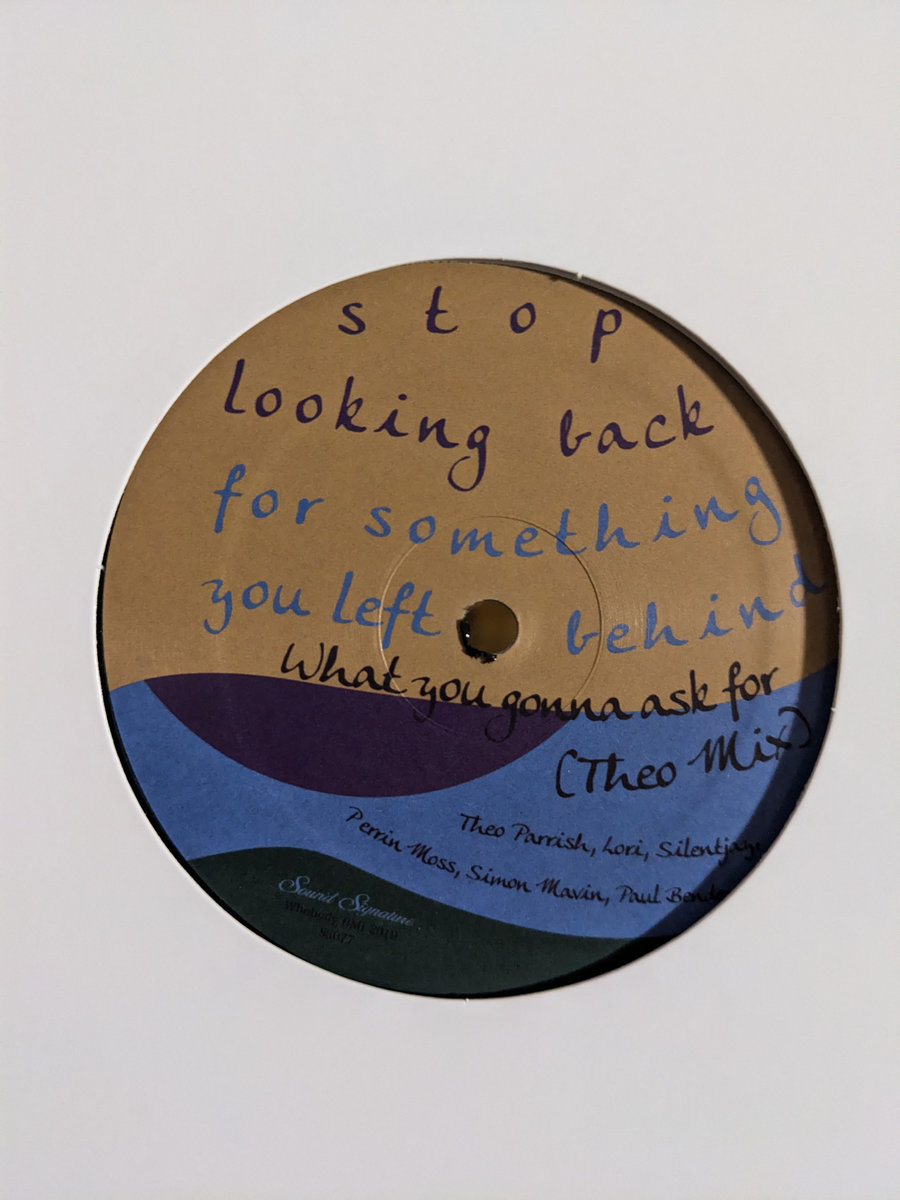 stop
looking back
for something
you left behind
What you gonna ask for
(Theo Mix)
Theo Parrish, Lori, Silentjay,
Perrin Moss, Simon Mavin, Paul
Sound Signature
2019